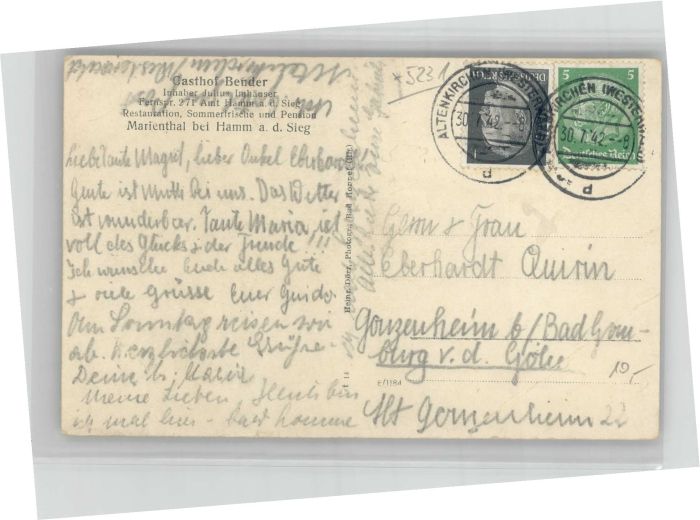 Gasthof Bender
Inhaber Julius Imhäuser
Fernspr. 271 Amt Hamm a. d. Sieg
Restauration, Sommerfrische und Pension
Marienthal bei Hamm a. d. Sieg
* 5231
ALTENKIRCHEN (WESTERWALD)
30.7.42.-8
d
DEUTSCHES REICH
ALTENKIRCHEN (WESTERWALD)
30.7.42.-8
d
5 5
Deutsches Reich
Liebe Tante Magrit, lieber Onkel Eberhard
Heute ist Mutti bei uns. Das Wetter
ist wunderbar. Tante Maria ist
voll des Glücks & der Freude !!!
Ich wünsche Euch alles Gute
& viele Grüsse Euer Guido.
Am Sonntag reisen wir
ab. Herzlichste Grüße
Deine Maria
Meine Lieben, Heute bin
ich mal hier - bald komme
Herrn & Frau
Eberhardt Quirin
Gonzenheim b/Bad Hom-
burg v. d. Höhe
Alt Gonzenheim 22
10,-
E/1184